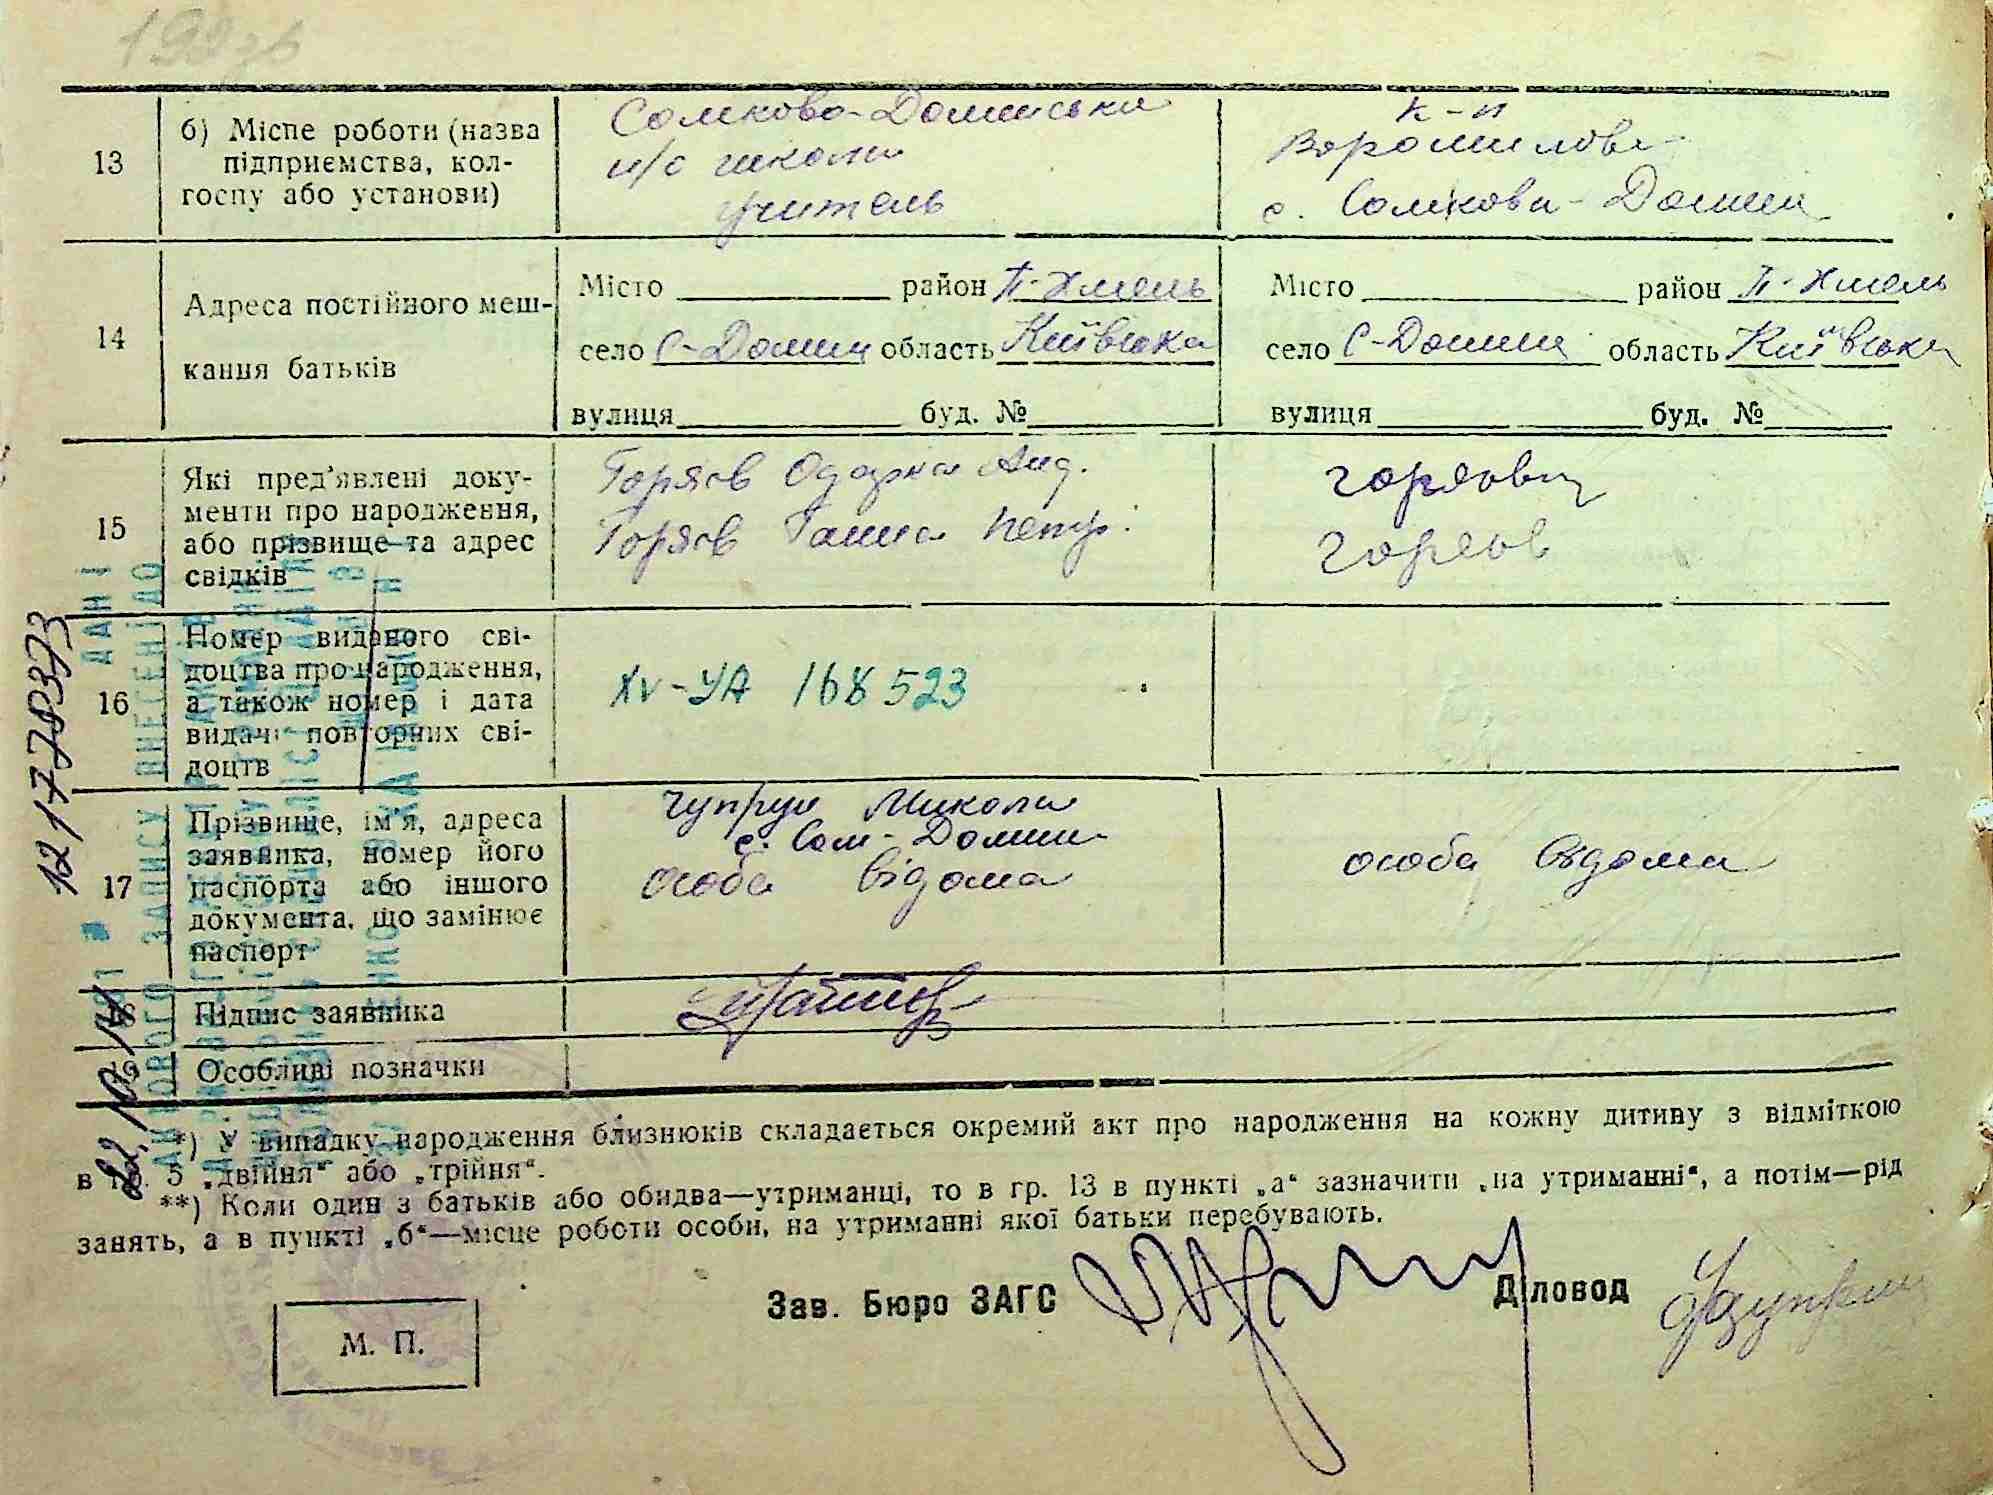 13
б) Місце роботи (назва
підприємства, кол-
госпу або установи)
Сомково-Долинська
н/с школа
учитель
к-п
Ворошилова
с. Сомкова-Долина
14
Адреса постійного меш-
кання батьків
Місто район П-Хмель
село С-Долина область Київська
вулиця буд. №
Місто район П-Хмель
село С-Долина область Київська
вулиця буд. №
15
Які пред'явлені доку-
менти про народження,
або прізвище та адрес
свідків
Горяєв Одарка Анд.
Горяєв Ганна Петр.
16
Номер виданого сві-
доцтва про народження,
а також номер і дата
видачі повторних сві-
доцтв
XV-УА 168523
17
Прізвище, ім'я, адреса
заявника, номер його
паспорта або іншого
документа, що замінює
паспорт
Чупрун Микола
с. Сом-Долина
особа відома
особа відома
18
Підпис заявника
19
Особливі позначки
*) У випадку народження близнюків складається окремий акт про народження на кожну дитину з відміткою
в гр. 5 „двійня“ або „трійня“.
**) Коли один з батьків або обидва—утриманці, то в гр. 13 в пункті „а“ зазначити „на утриманні“, а потім—рід
занять, а в пункті „б“—місце роботи особи, на утриманні якої батьки перебувають.
Зав. Бюро ЗАГС
Діловод
М. П.
ДАНІ
ВНЕСЕНІ ДО